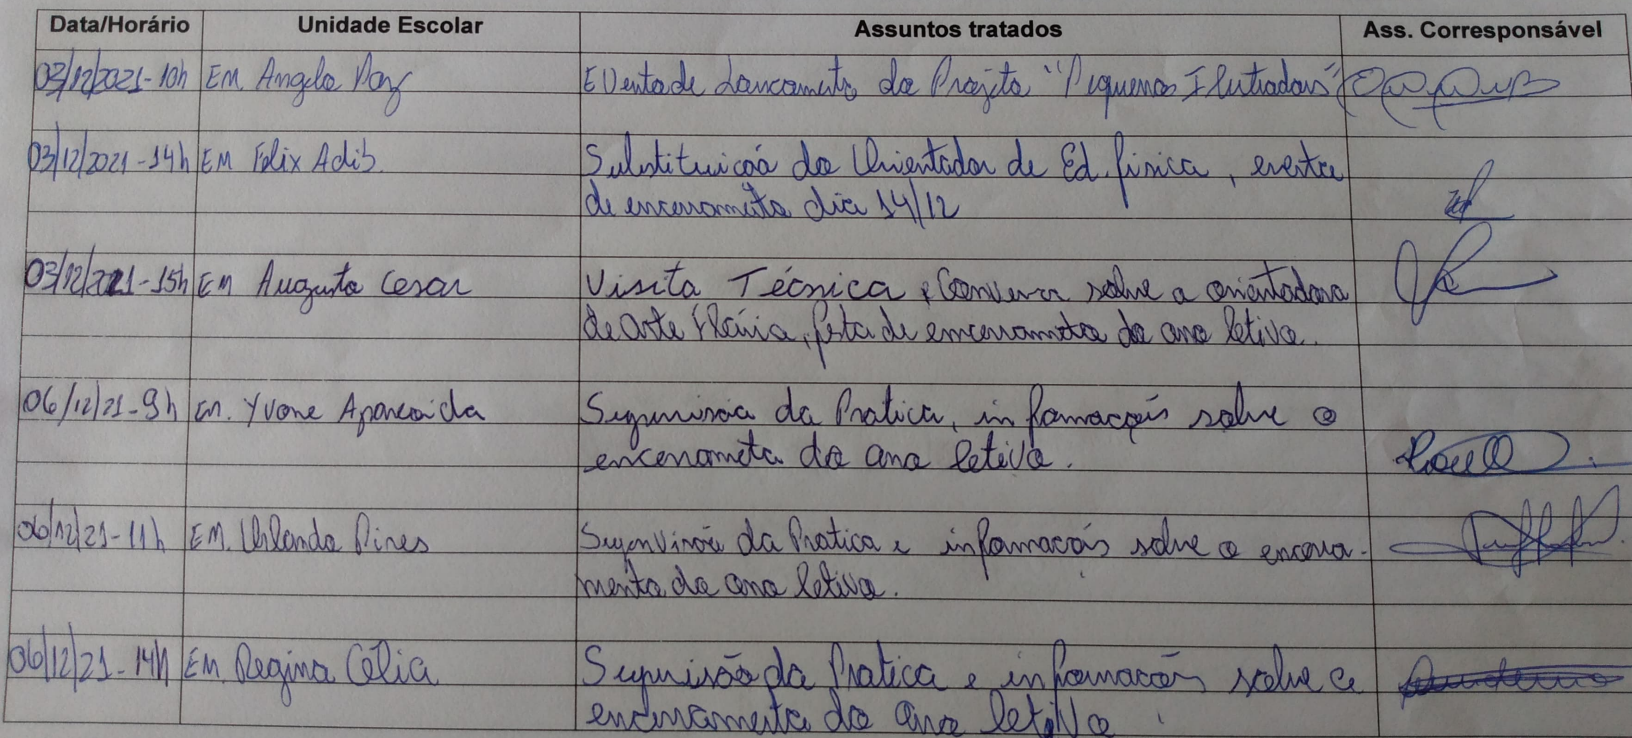 Data/Horário Unidade Escolar Assuntos tratados Ass. Corresponsável
03/12/2021-10h EM. Angela Evento de Lançamento do Projeto "Pequenos Ilustradores"
03/12/2021-14h EM Felix Adib. Substituição do Orientador de Ed. física, evento
de encerramento dia 14/12
03/12/2021-15h EM Augusto Cesar Visita Técnica, Conversa sobre a orientadora
de Arte Flávia, festa de encerramento do ano letivo.
06/12/21-9h EM. Yvone Aparecida Supervisão da Pratica, informações sobre o
encerramento do ano letivo.
06/12/21-11h EM. Orlando Pires Supervisão da Pratica e informações sobre o encerra-
mento do ano letivo.
06/12/21-14h EM. Regina Célia Supervisão da Pratica e informações sobre o
encerramento do ano letivo